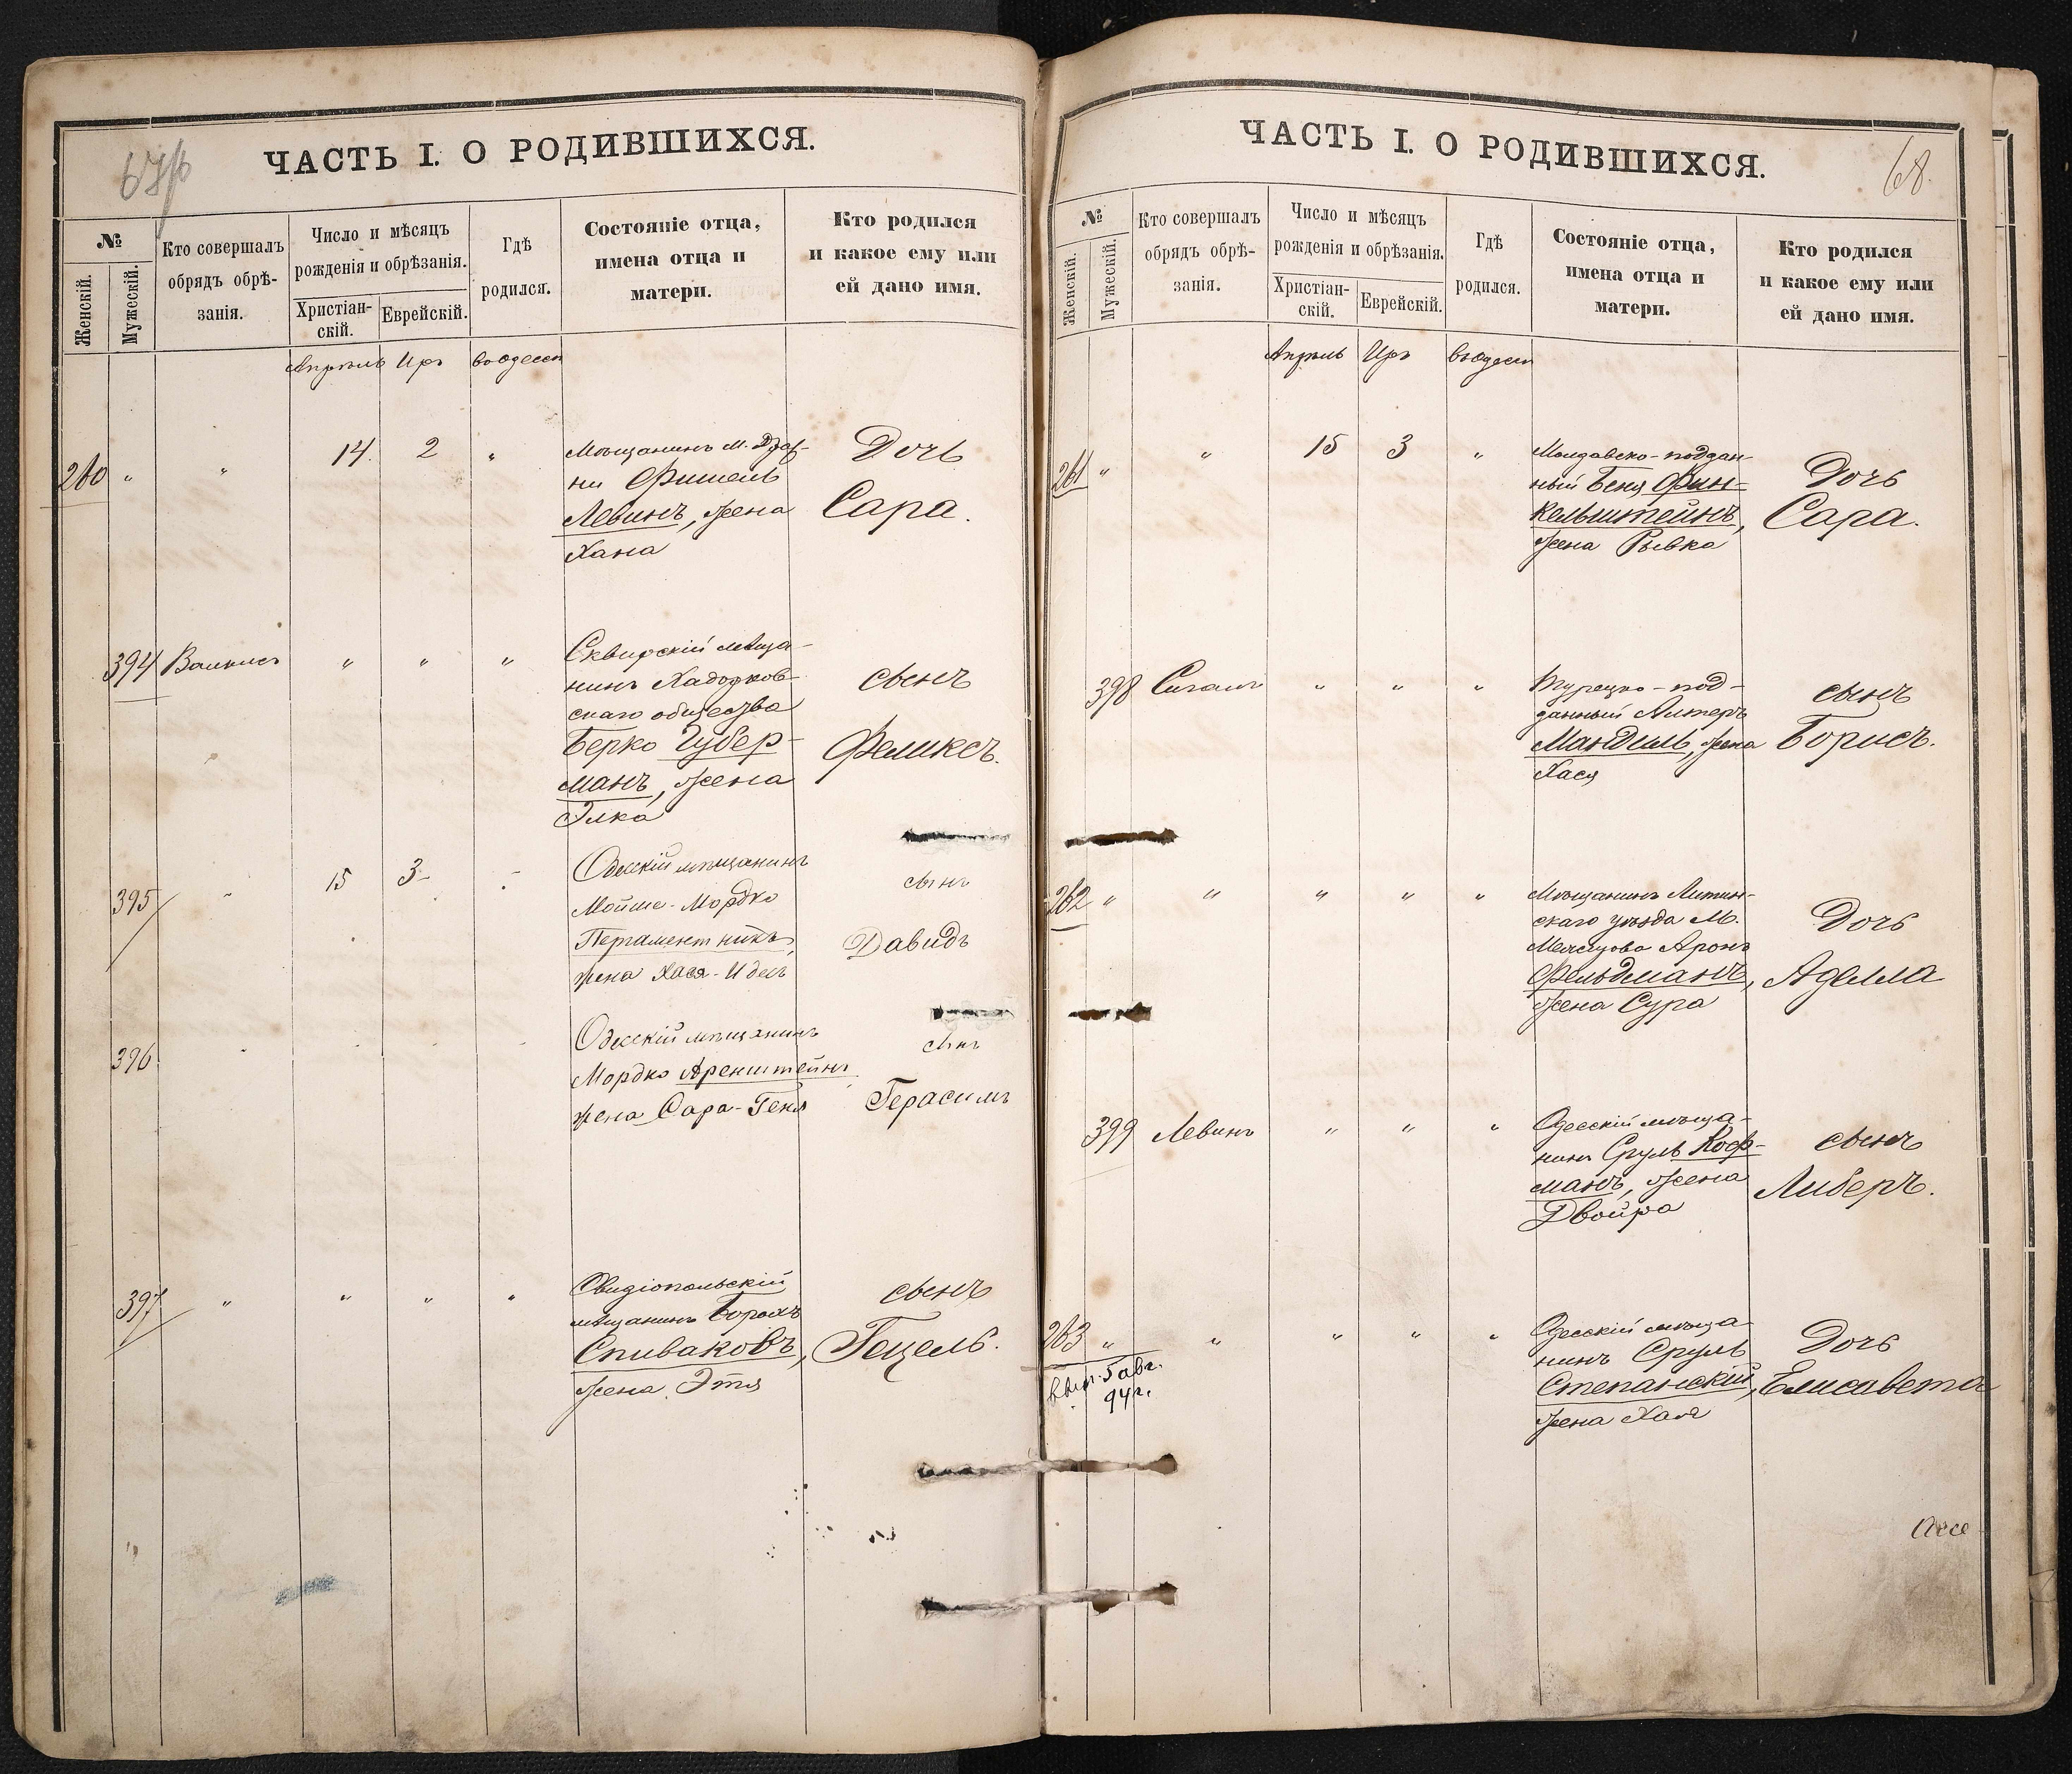 ЧАСТЬ I. О РОДИВШИХСЯ.
№
Женскій.
Мужескій.
Кто совершалъ
обрядъ обрѣ-
занія.
Число и мѣсяцъ
рожденія и обрѣзанія.
Христіан-
скій.
Еврейскій.
Гдѣ
родился.
Состояніе отца,
имена отца и
матери.
Кто родился
и какое ему или
ей дано имя.
Апрѣль Иръ въ Одессѣ
260 " " 14. 2 "
Мѣщанинъ м.
Фишель
Левинъ, жена
Хана
Дочь
Сара.
394 " " "
Сквирскій мѣща-
нинъ Ходорков-
скаго общества
Берко Губер-
манъ, жена
Элка
сынъ
Феликсъ.
395 " 15 3 "
Одесскій мѣщанинъ
Мойше-Мордко
Пергаментникъ,
жена Хася-Идель
сынъ
Давидъ
396
Одесскій мѣщанинъ
Мордко Аренштейнъ
жена Сара-Геня
сынъ
Герасимъ
397 " " " "
Овидіопольскій
мѣщанинъ Борохъ
Спиваковъ,
жена Этя
сынъ
Гецель.
ЧАСТЬ I. О РОДИВШИХСЯ.
68.
№
Женскій.
Мужескій.
Кто совершалъ
обрядъ обрѣ-
занія.
Число и мѣсяцъ
рожденія и обрѣзанія.
Христіан-
скій.
Еврейскій.
Гдѣ
родился.
Состояніе отца,
имена отца и
матери.
Кто родился
и какое ему или
ей дано имя.
Апрѣль Иръ въ Одессѣ
261 " " 15 3 "
Молдавско-поддан-
ный Беня Фин-
кельштейнъ,
жена Рывка
Дочь
Сара.
398 Сигалъ " " "
Турецко-под-
данный Алтеръ
Мандиль, жена
Хася
сынъ
Борисъ.
262 " " " " "
Мѣщанинъ Литин-
скаго уѣзда М.
Аронъ
Фельдманъ,
жена Сура
Дочь
Аделла
399 Левинъ " " "
Одесскій мѣща-
нинъ Сруль Коф-
манъ, жена
Двойра
сынъ
Либеръ.
263 " " " " "
вып. 5 авг.
94 г.
Одесскій мѣща-
нинъ Сруль
Степанскій,
жена Хая
Дочь
Елисавета